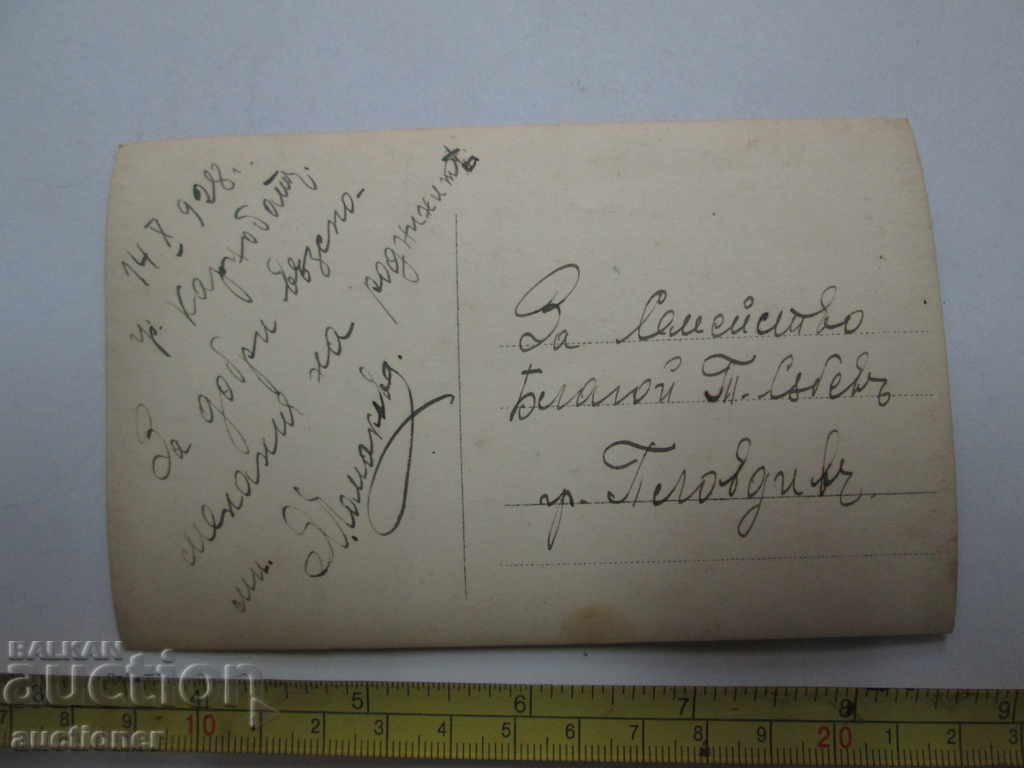 14 X 928.
гр. Карнобатъ.
За добри възпо-
менания на роднинитѣ
ми.
За Семейство
Благой Т. Събевъ
гр. Пловдивъ.
BALKAN
auction
auctioner
3 5 6 7 8 9
7 8 9 10 1 2 3 4 5 6 7 8 9 20 1 2 3